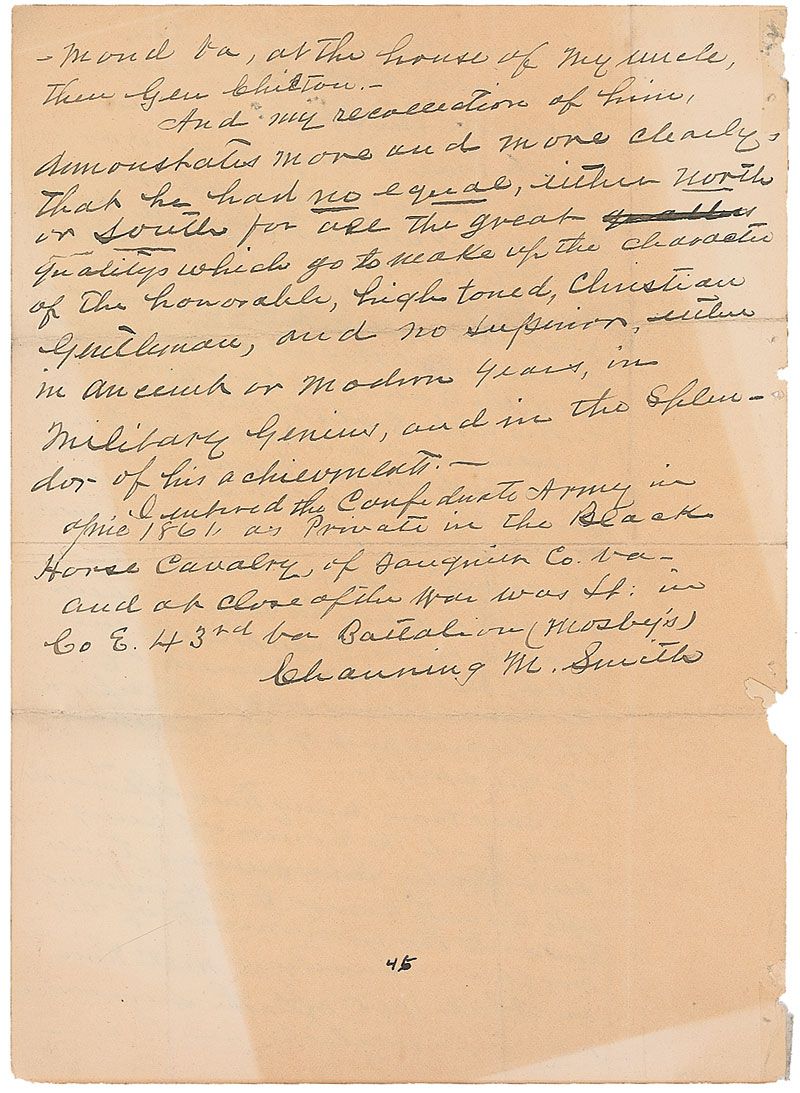 - mond Va, at the house of my uncle,
then Gen Chilton. -
And my recollection of him,
demonstrates more and more clearly,
that he had no equal, either North
or South for all the great
qualitys which go to make up the character
of the honorable, high toned, Christian
Gentleman, and no superior, either
in ancient or modern years, in
Military Genius, and in the Splen -
dor of his achievments. -
I entered the Confederate Army in
April 1861, as Private in the Black
Horse Cavalry, of Fauquier Co. Va -
and at close of the war was Lt: in
Co E. 43rd Va Battalion (Mosby's)
Channing M. Smith
45